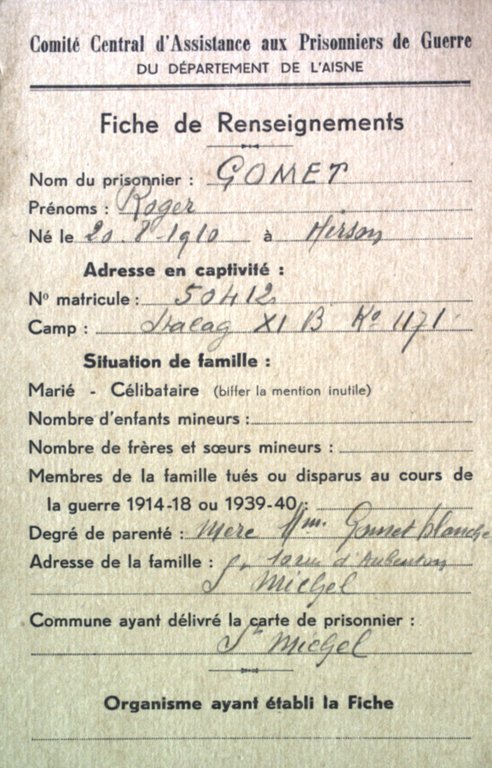 Comité Central d'Assistance aux Prisonniers de Guerre
DU DÉPARTEMENT DE L'AISNE
Fiche de Renseignements
Nom du prisonnier : GOMET
Prénoms : Roger
Né le 20.8.1910 à Hirson
Adresse en captivité :
No matricule : 50412
Camp : Stalag XI B Ko 1171
Situation de famille :
Marié - Célibataire (biffer la mention inutile)
Nombre d'enfants mineurs :
Nombre de frères et sœurs mineurs :
Membres de la famille tués ou disparus au cours de
la guerre 1914-18 ou 1939-40 :
Degré de parenté : Mère Mme Gomet blanche
Adresse de la famille : rue d'Aubenton
St Michel
Commune ayant délivré la carte de prisonnier :
St Michel
Organisme ayant établi la Fiche